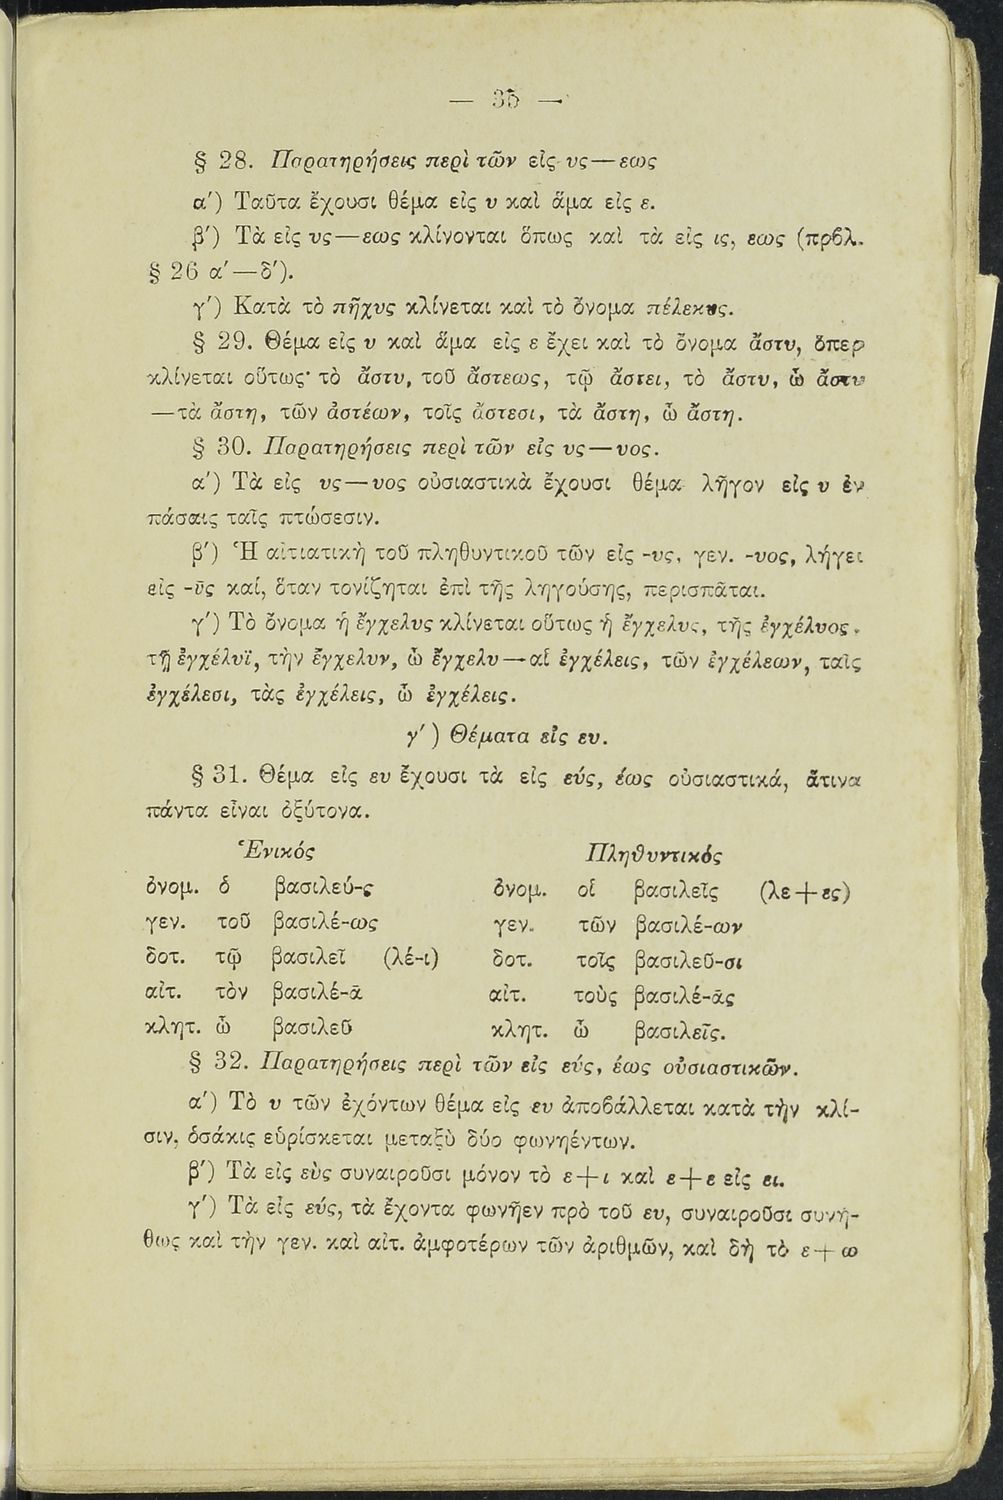 — 35 —
§ 28. Παρατηρήσεις περὶ τῶν εἰς υς—εως
α′) Ταῦτα ἔχουσι θέμα εἰς υ καὶ ἅμα εἰς ε.
β′) Τὰ εἰς υς—εως κλίνονται ὅπως καὶ τὰ εἰς ις, εως (πρβλ.
§ 26 α′—δ′).
γ′) Κατὰ τὸ πῆχυς κλίνεται καὶ τὸ ὄνομα πέλεκυς.
§ 29. Θέμα εἰς υ καὶ ἅμα εἰς ε ἔχει καὶ τὸ ὄνομα ἄστυ, ὅπερ
κλίνεται οὕτως· τὸ ἄστυ, τοῦ ἄστεως, τῷ ἄστει, τὸ ἄστυ, ὦ ἄστυ
—τὰ ἄστη, τῶν ἀστέων, τοῖς ἄστεσι, τὰ ἄστη, ὦ ἄστη.
§ 30. Παρατηρήσεις περὶ τῶν εἰς υς—υος.
α′) Τὰ εἰς υς—υος οὐσιαστικὰ ἔχουσι θέμα λῆγον εἰς υ ἐν
πάσαις ταῖς πτώσεσιν.
β′) Ἡ αἰτιατικὴ τοῦ πληθυντικοῦ τῶν εἰς -υς, γεν. -υος, λήγει
εἰς -ῦς καί, ὅταν τονίζηται ἐπὶ τῆς ληγούσης, περισπᾶται.
γ′) Τὸ ὄνομα ἡ ἔγχελυς κλίνεται οὕτως ἡ ἔγχελυς, τῆς ἐγχέλυος,
τῇ ἐγχέλυϊ, τὴν ἔγχελυν, ὦ ἔγχελυ—αἱ ἐγχέλεις, τῶν ἐγχέλεων, ταῖς
ἐγχέλεσι, τὰς ἐγχέλεις, ὦ ἐγχέλεις.
γ′) Θέματα εἰς ευ.
§ 31. Θέμα εἰς ευ ἔχουσι τὰ εἰς εύς, έως οὐσιαστικά, ἅτινα
πάντα εἶναι ὀξύτονα.
Ἑνικός Πληθυντικός
ὀνομ. ὁ βασιλεύ-ς ὀνομ. οἱ βασιλεῖς (λε+ες)
γεν. τοῦ βασιλέ-ως γεν. τῶν βασιλέ-ων
δοτ. τῷ βασιλεῖ (λέ-ι) δοτ. τοῖς βασιλεῦ-σι
αἰτ. τὸν βασιλέ-ᾱ αἰτ. τοὺς βασιλέ-ᾱς
κλητ. ὦ βασιλεῦ κλητ. ὦ βασιλεῖς.
§ 32. Παρατηρήσεις περὶ τῶν εἰς εύς, έως οὐσιαστικῶν.
α′) Τὸ υ τῶν ἐχόντων θέμα εἰς ευ ἀποβάλλεται κατὰ τὴν κλί-
σιν, ὁσάκις εὑρίσκεται μεταξὺ δύο φωνηέντων.
β′) Τὰ εἰς εὺς συναιροῦσι μόνον τὸ ε+ι καὶ ε+ε εἰς ει.
γ′) Τὰ εἰς εύς, τὰ ἔχοντα φωνῆεν πρὸ τοῦ ευ, συναιροῦσι συνή-
θως καὶ τὴν γεν. καὶ αἰτ. ἀμφοτέρων τῶν ἀριθμῶν, καὶ δὴ τὸ ε+ω